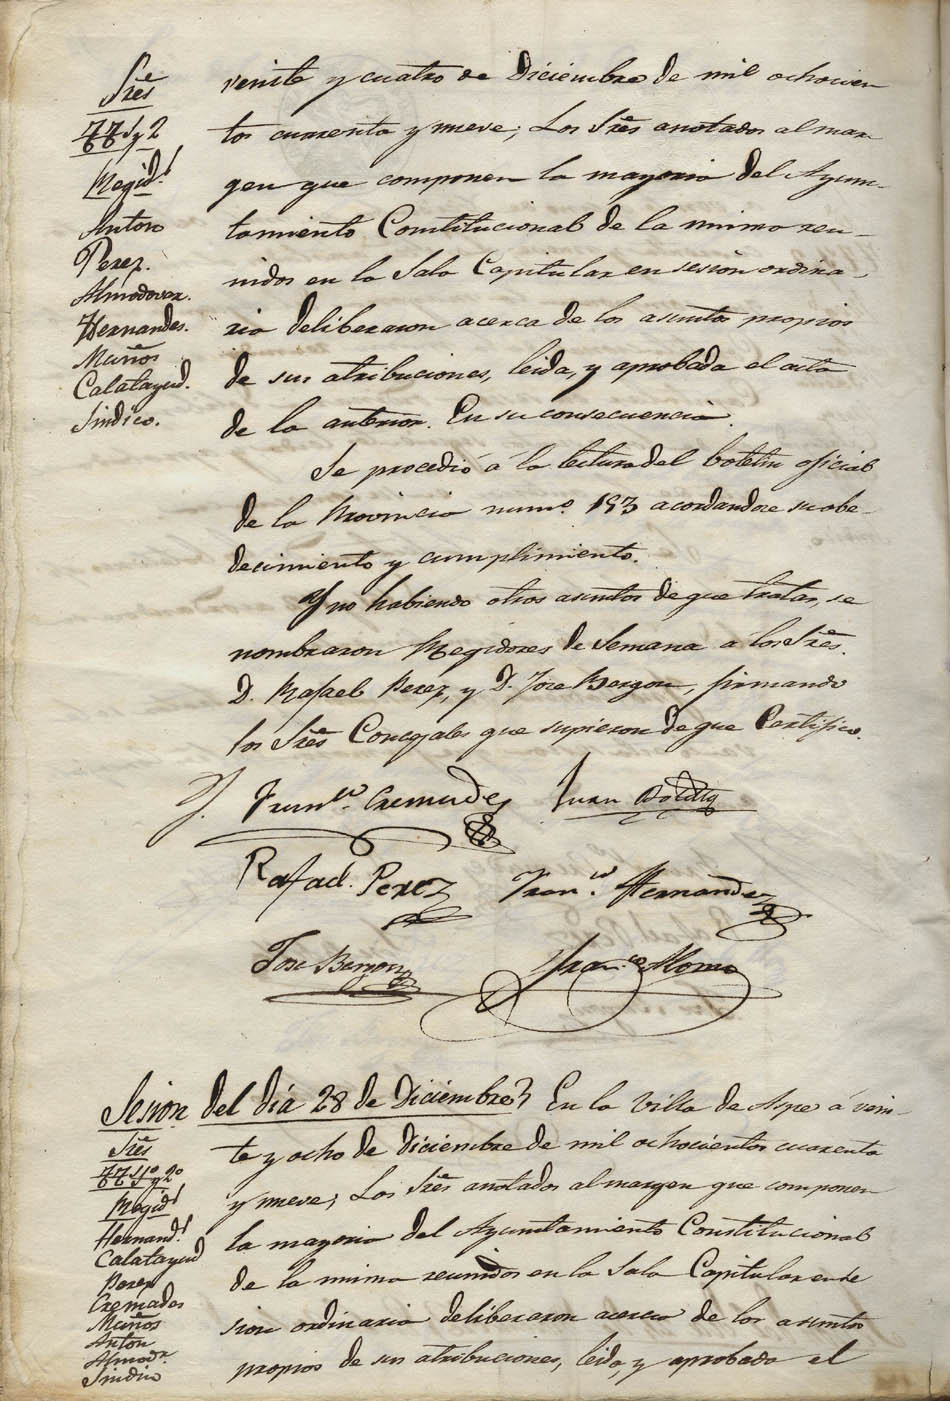 Sres
TT 1 y 2
Regids
Anton
Perez.
Almodovar.
Hernandes.
Muños
Calatayud.
Sindico.
veinte y cuatro de Diciembre de mil ochocien
tos cuarenta y nueve; Los Sres anotados al mar
gen que componen la mayoria del Ayun-
tamiento Constitucional de la misma reu-
nidos en la Sala Capitular en sesion ordina-
ria deliberaron acerca de los asuntos propios
de sus atribuciones, leida, y aprobada el acta
de la anterior. En su consecuencia.
Se procedió á la lectura del boletin oficial
de la Provincia numo 153 acordandose su obe-
decimiento y cumplimiento.
Y no habiendo otros asuntos de que tratar, se
nombraron Regidores de Semana a los Sres.
D. Rafael Perez, y D. Jose Bergon, firmando
los Sres Concejales que supieron de que Certifico.
Franco Cremades Juan
Rafael Perez Franco Hernandez
Jose Bergon Franco
Sesion del diá 28 de Diciembre} En la Villa de Aspe á vein-
Sres
TT 1o y 2o
Regids
Hernands
Calatayud
Perez
Cremades
Muños
Anton
Almodr
Sindico
te y ocho de diciembre de mil ochocientos cuarenta
y nueve; Los Sres anotados al margen que componen
la mayoria del Ayuntamiento Constitucional
de la misma reunidos en la Sala Capitular en se
sion ordinaria deliberaron acerca de los asuntos
propios de sus atribuciones, leida, y aprobada el